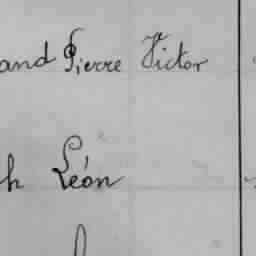 and Pierre Victor
h Léon